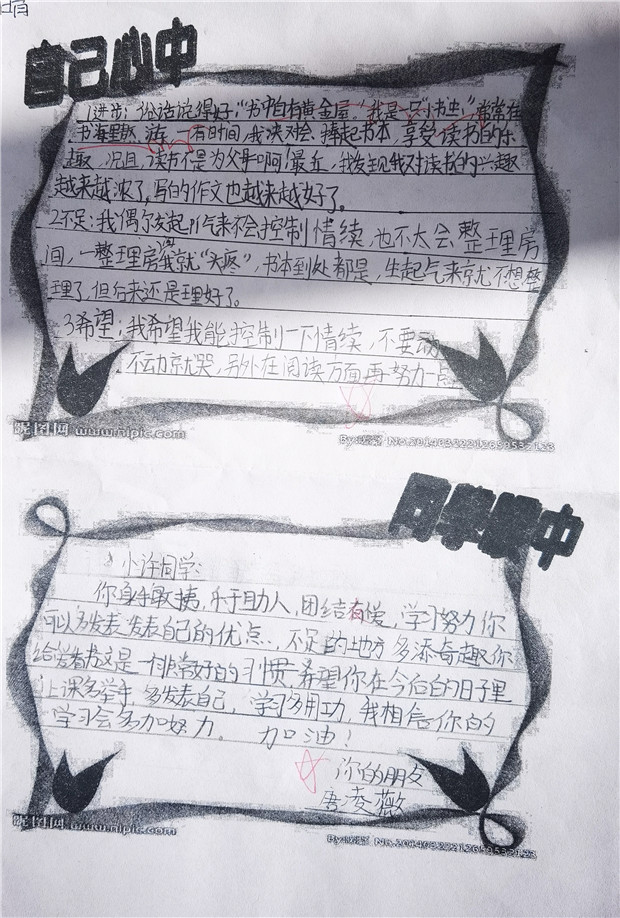 自己心中
1进步：俗话说得好："书中自有黄金屋"我是一只"小书虫"常常在
书海里遨游，一有时间，我决对会捧起书本，享受读书的乐
趣，况且，读书不是为父母啊！最近，我发现我对读书的兴趣
越来越浓了，写的作文也越来越好了。
2不足：我偶尔发起川气来不会控制情续，也不太会整理房
间，一整理房间我就"头疼"，书本到处都是，生起气来就不想整
理了，但后来还是理好了。
3希望：我希望我能控制一下情续，不要动
不动就哭，另外在阅读方面再努力一点
昵图网 www.nipic.com
By: No.20140332212659537123
同学眼中
小许同学：
你身手敏捷，乐于助人，团结有爱，学习努力你
可以多发表发表自己的优点，不足的地方多添奇趣你
给爱看书这是一排常好的习惯，希望你在今后的日子里
上课多举手，多发表自己，学习多用功，我相信你的
学习会多加努力。加油！
你的朋友
唐凌薇
昵图网 www.nipic.com
By: No.20140332212659537123